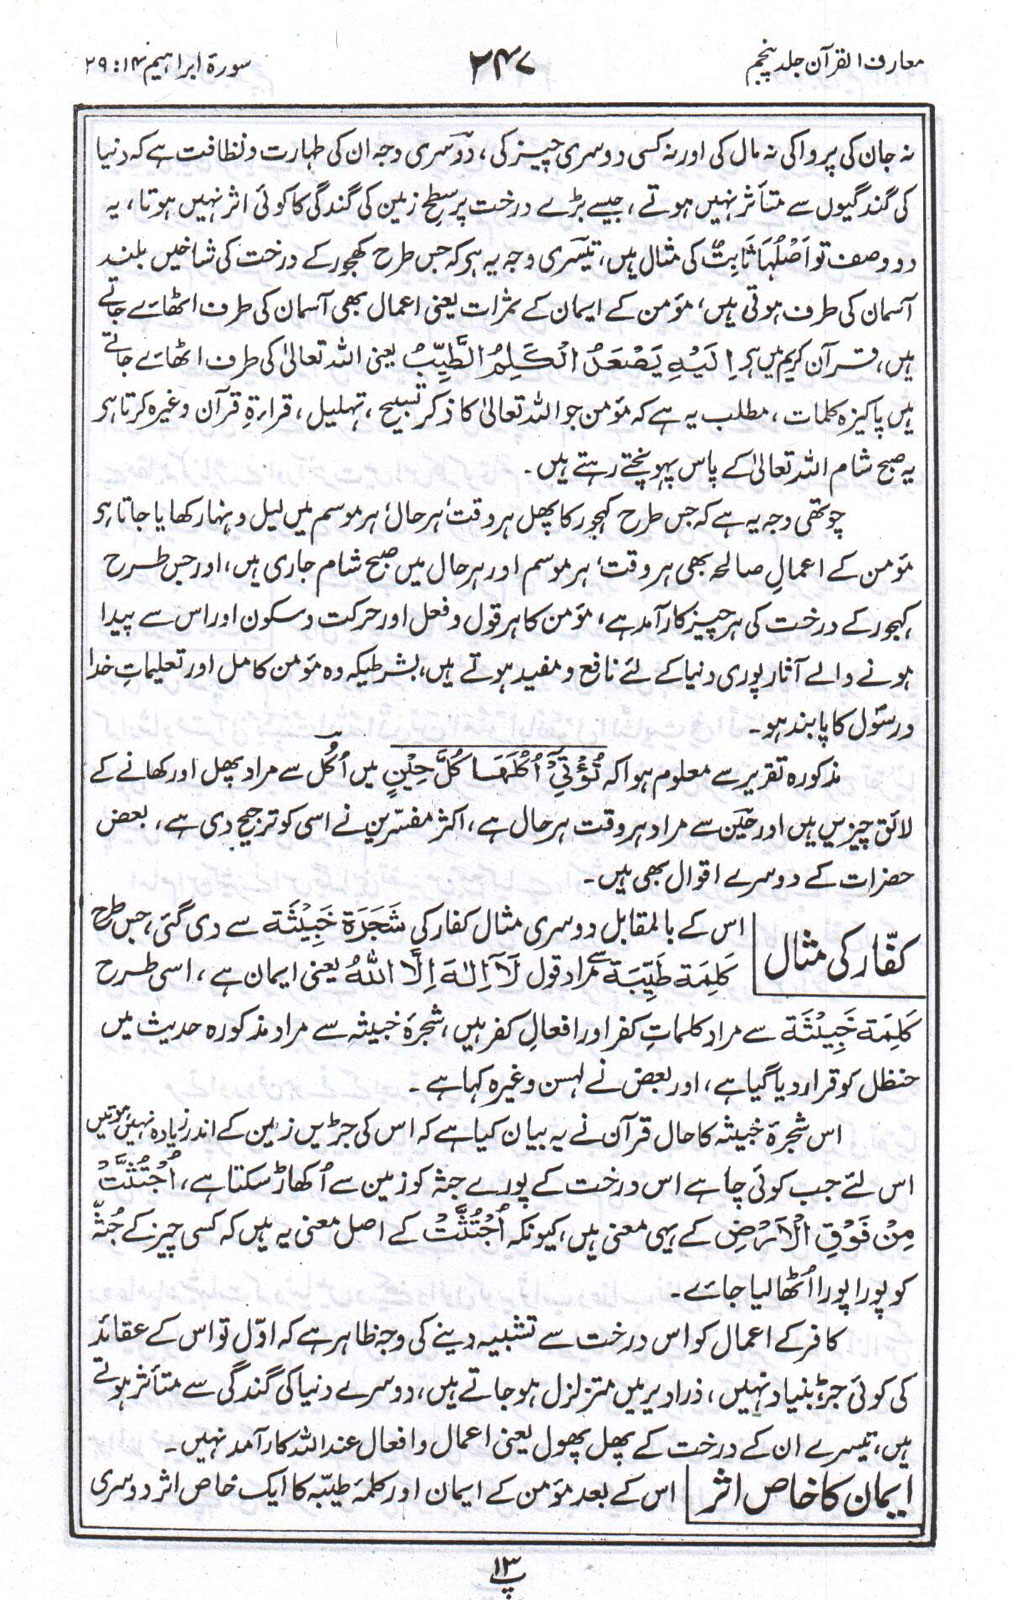 معارف القرآن جلد پنجم
۲۴۷
سورۃ ابراہیم ۱۴: ۲۹
نہ جان کی پروا کی نہ مال کی اور نہ کسی دوسری چیز کی، دوسری وجہ ان کی طہارت و نظافت ہے کہ دنیا
کی گندگیوں سے متأثر نہیں ہوتے، جیسے بڑے درخت پر سطح زمین کی گندگی کا کوئی اثر نہیں ہوتا، یہ
دو وصف تو اَصْلُہَا ثَابِتٌ کی مثال ہیں، تیسری وجہ یہ ہی کہ جس طرح کھجور کے درخت کی شاخیں بلند
آسمان کی طرف ہوتی ہیں، مؤمن کے ایمان کے ثمرات یعنی اعمال بھی آسمان کی طرف اٹھائے جاتے
ہیں، قرآن کریم میں ہی اِلَیْہِ یَصْعَدُ الْکَلِمُ الطَّیِّبُ یعنی اللہ تعالیٰ کی طرف اٹھائے جاتے
ہیں پاکیزہ کلمات، مطلب یہ ہے کہ مؤمن جو اللہ تعالیٰ کا ذکر تسبیح، تہلیل، قراءۃِ قرآن وغیرہ کرتا ہی
یہ صبح شام اللہ تعالیٰ کے پاس پہونچتے رہتے ہیں۔
چوتھی وجہ یہ ہے کہ جس طرح کھجور کا پھل ہر وقت، ہر حال، ہر موسم میں لیل و نہار کھایا جاتا ہی
مؤمن کے اعمالِ صالحہ بھی ہر وقت، ہر موسم اور ہر حال میں صبح شام جاری ہیں، اور جس طرح
کھجور کے درخت کی ہر چیز کارآمد ہے، مؤمن کا ہر قول و فعل اور حرکت و سکون اور اس سے پیدا
ہونے والے آثار پوری دنیا کے لئے نافع و مفید ہوتے ہیں، بشرطیکہ وہ مؤمن کامل اور تعلیماتِ خدا
و رسول کا پابند ہو۔
مذکورہ تقریر سے معلوم ہوا کہ تُؤْتِیْٓ اُکُلَہَا کُلَّ حِیْنٍ میں اُکُل سے مراد پھل اور کھانے کے
لائق چیزیں ہیں اور حین سے مراد ہر وقت ہر حال ہے، اکثر مفسّرین نے اسی کو ترجیح دی ہے، بعض
حضرات کے دوسرے اقوال بھی ہیں۔
کفّار کی مثال
اس کے بالمقابل دوسری مثال کفار کی شَجَرَۃ خَبِیْثَۃ سے دی گئی، جس طرح
کَلِمَۃ طَیِّبَۃ سے مراد قول لَآ اِلٰہَ اِلَّا اللّٰہُ یعنی ایمان ہے، اسی طرح
کَلِمَۃ خَبِیْثَۃ سے مراد کلماتِ کفر اور افعالِ کفر ہیں، شجرۂ خبیثہ سے مراد مذکورہ حدیث میں
حنظل کو قرار دیا گیا ہے، اور بعض نے لہسن وغیرہ کہا ہے۔
اس شجرۂ خبیثہ کا حال قرآن نے یہ بیان کیا ہے کہ اس کی جڑیں زمین کے اندر زیادہ نہیں ہوتیں
اس لئے جب کوئی چاہے اس درخت کے پورے جثہ کو زمین سے اُکھاڑ سکتا ہے، اُجْتُثَّتْ
مِنْ فَوْقِ الْاَرْضِ کے یہی معنی ہیں، کیونکہ اُجْتُثَّتْ کے اصل معنی یہ ہیں کہ کسی چیز کے جُثّہ
کو پورا پورا اُٹھا لیا جائے۔
کافر کے اعمال کو اس درخت سے تشبیہ دینے کی وجہ ظاہر ہے کہ اوّل تو اس کے عقائد
کی کوئی جڑ بنیاد نہیں، ذرا دیر میں متزلزل ہو جاتے ہیں، دوسرے دنیا کی گندگی سے متأثر ہوتے
ہیں، تیسرے ان کے درخت کے پھل پھول یعنی اعمال و افعال عند اللہ کارآمد نہیں۔
ایمان کا خاص اثر
اس کے بعد مؤمن کے ایمان اور کلمۂ طیّبہ کا ایک خاص اثر دوسری
۱۳